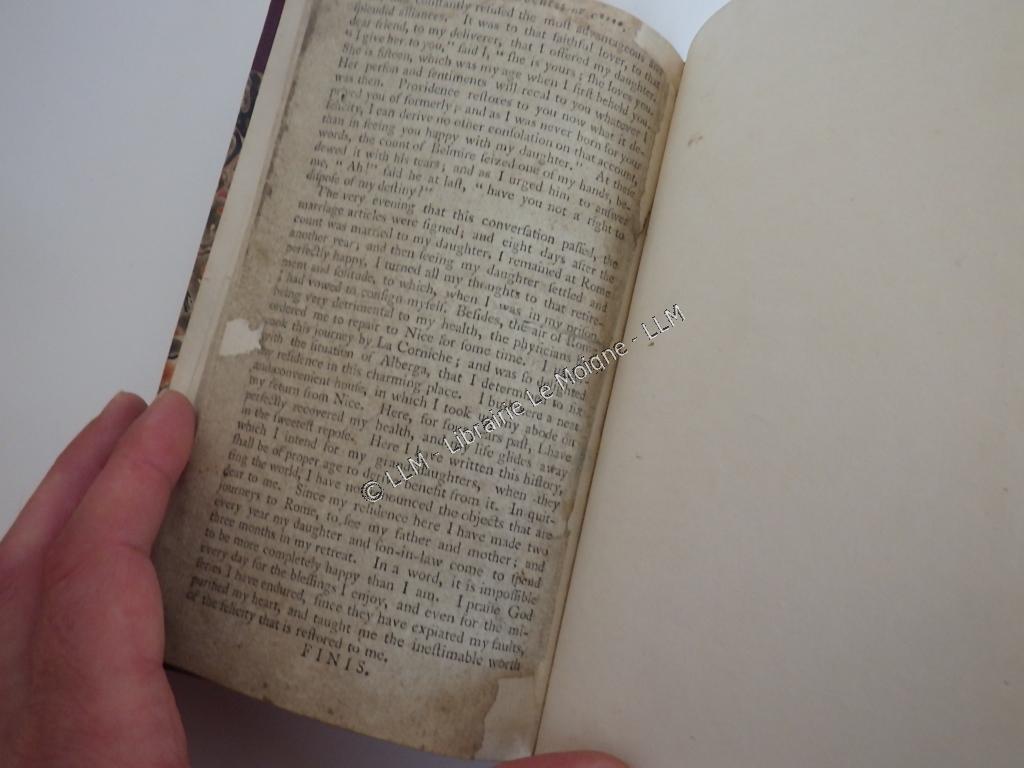 constantly refused the most advantageous
splendid alliances. It was to that faithful lover, to that
dear friend, to my deliverer, that I offered my daughter.
"I give her to you," said I, "she is yours; she loves you.
She is fifteen, which was my age when I first beheld you.
Her person and sentiments will recal to you whatever I
was then. Providence restores to you now what it de-
prived you of formerly; and as I was never born for your
felicity, I can derive no other consolation on that account
than in seeing you happy with my daughter." At these
words, the count of Belmire seized one of my hands, be-
dewed it with his tears; and as I urged him to answer
me, "Ah!" said he at last, "have you not a right to
dispose of my destiny?"
The very evening that this conversation passed, the
marriage articles were signed; and eight days after the
count was married to my daughter. I remained at Rome
another year; and then seeing my daughter settled and
perfectly happy, I turned all my thoughts to that retire-
ment and solitude, to which, when I was in my prison,
I had vowed to consign myself. Besides, the air of Rome
being very detrimental to my health, the physicians
ordered me to repair to Nice for some time. I
took this journey by La Corniche; and was so
with the situation of Albenga, that I determined to fix
my residence in this charming place. I built here a neat
and convenient house, in which I took my abode on
my return from Nice. Here, for years past, I have
perfectly recovered my health, and life glides away
in the sweetest repose. Here I have written this history,
which I intend for my daughters, when they
shall be of proper age to benefit from it. In quit-
ting the world, I have not renounced the objects that are
dear to me. Since my residence here I have made two
journeys to Rome, to see my father and mother; and
every year my daughter and son-in-law come to spend
three months in my retreat. In a word, it is impossible
to be more completely happy than I am. I praise God
every day for the blessings I enjoy, and even for the mi-
series I have endured, since they have expiated my faults,
purified my heart, and taught me the inestimable worth
of the felicity that is restored to me.
FINIS.
© LLM - Librairie Le Moigne - LLM